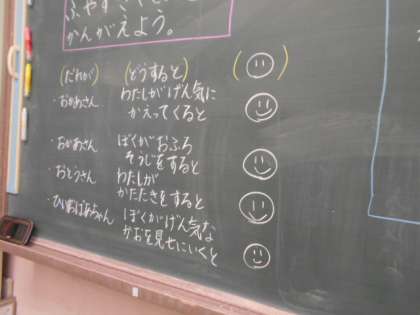 ふやす
かんがえよう。
(だれが) (どうすると) ( )
・おかあさん わたしがげん気に
かえってくると
おかあさん ぼくがおふろ
そうじをすると
・おとうさん わたしが
かたたたきをすると
・ひいおばあちゃん ぼくがげん気な
かおを見せにいくと